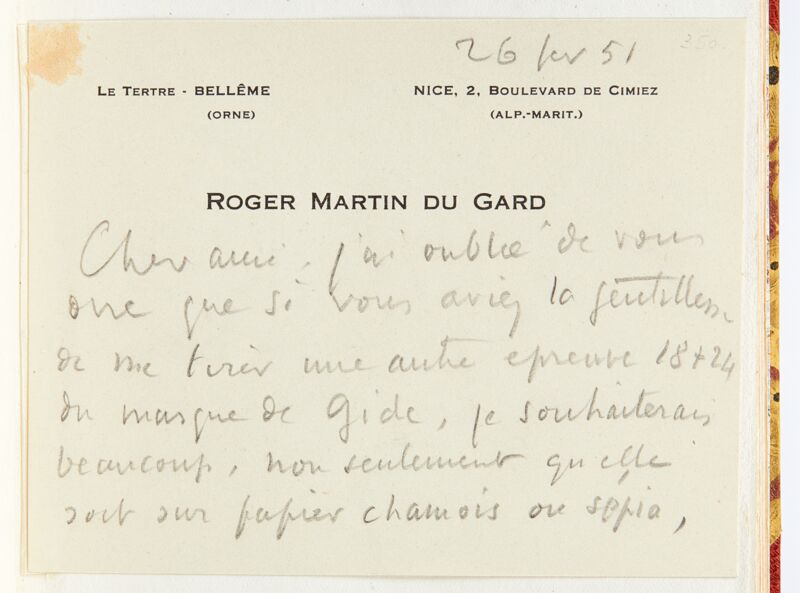 26 fev 51
350.
LE TERTRE - BELLÊME
(ORNE)
NICE, 2, BOULEVARD DE CIMIEZ
(ALP.-MARIT.)
ROGER MARTIN DU GARD
Cher ami. j'ai oublié de vous
dire que si vous aviez la gentillesse
de me tirer une autre epreuve 18+24
du masque de Gide, je souhaiterais
beaucoup, non seulement qu'elle
soit sur papier chamois ou sépia,